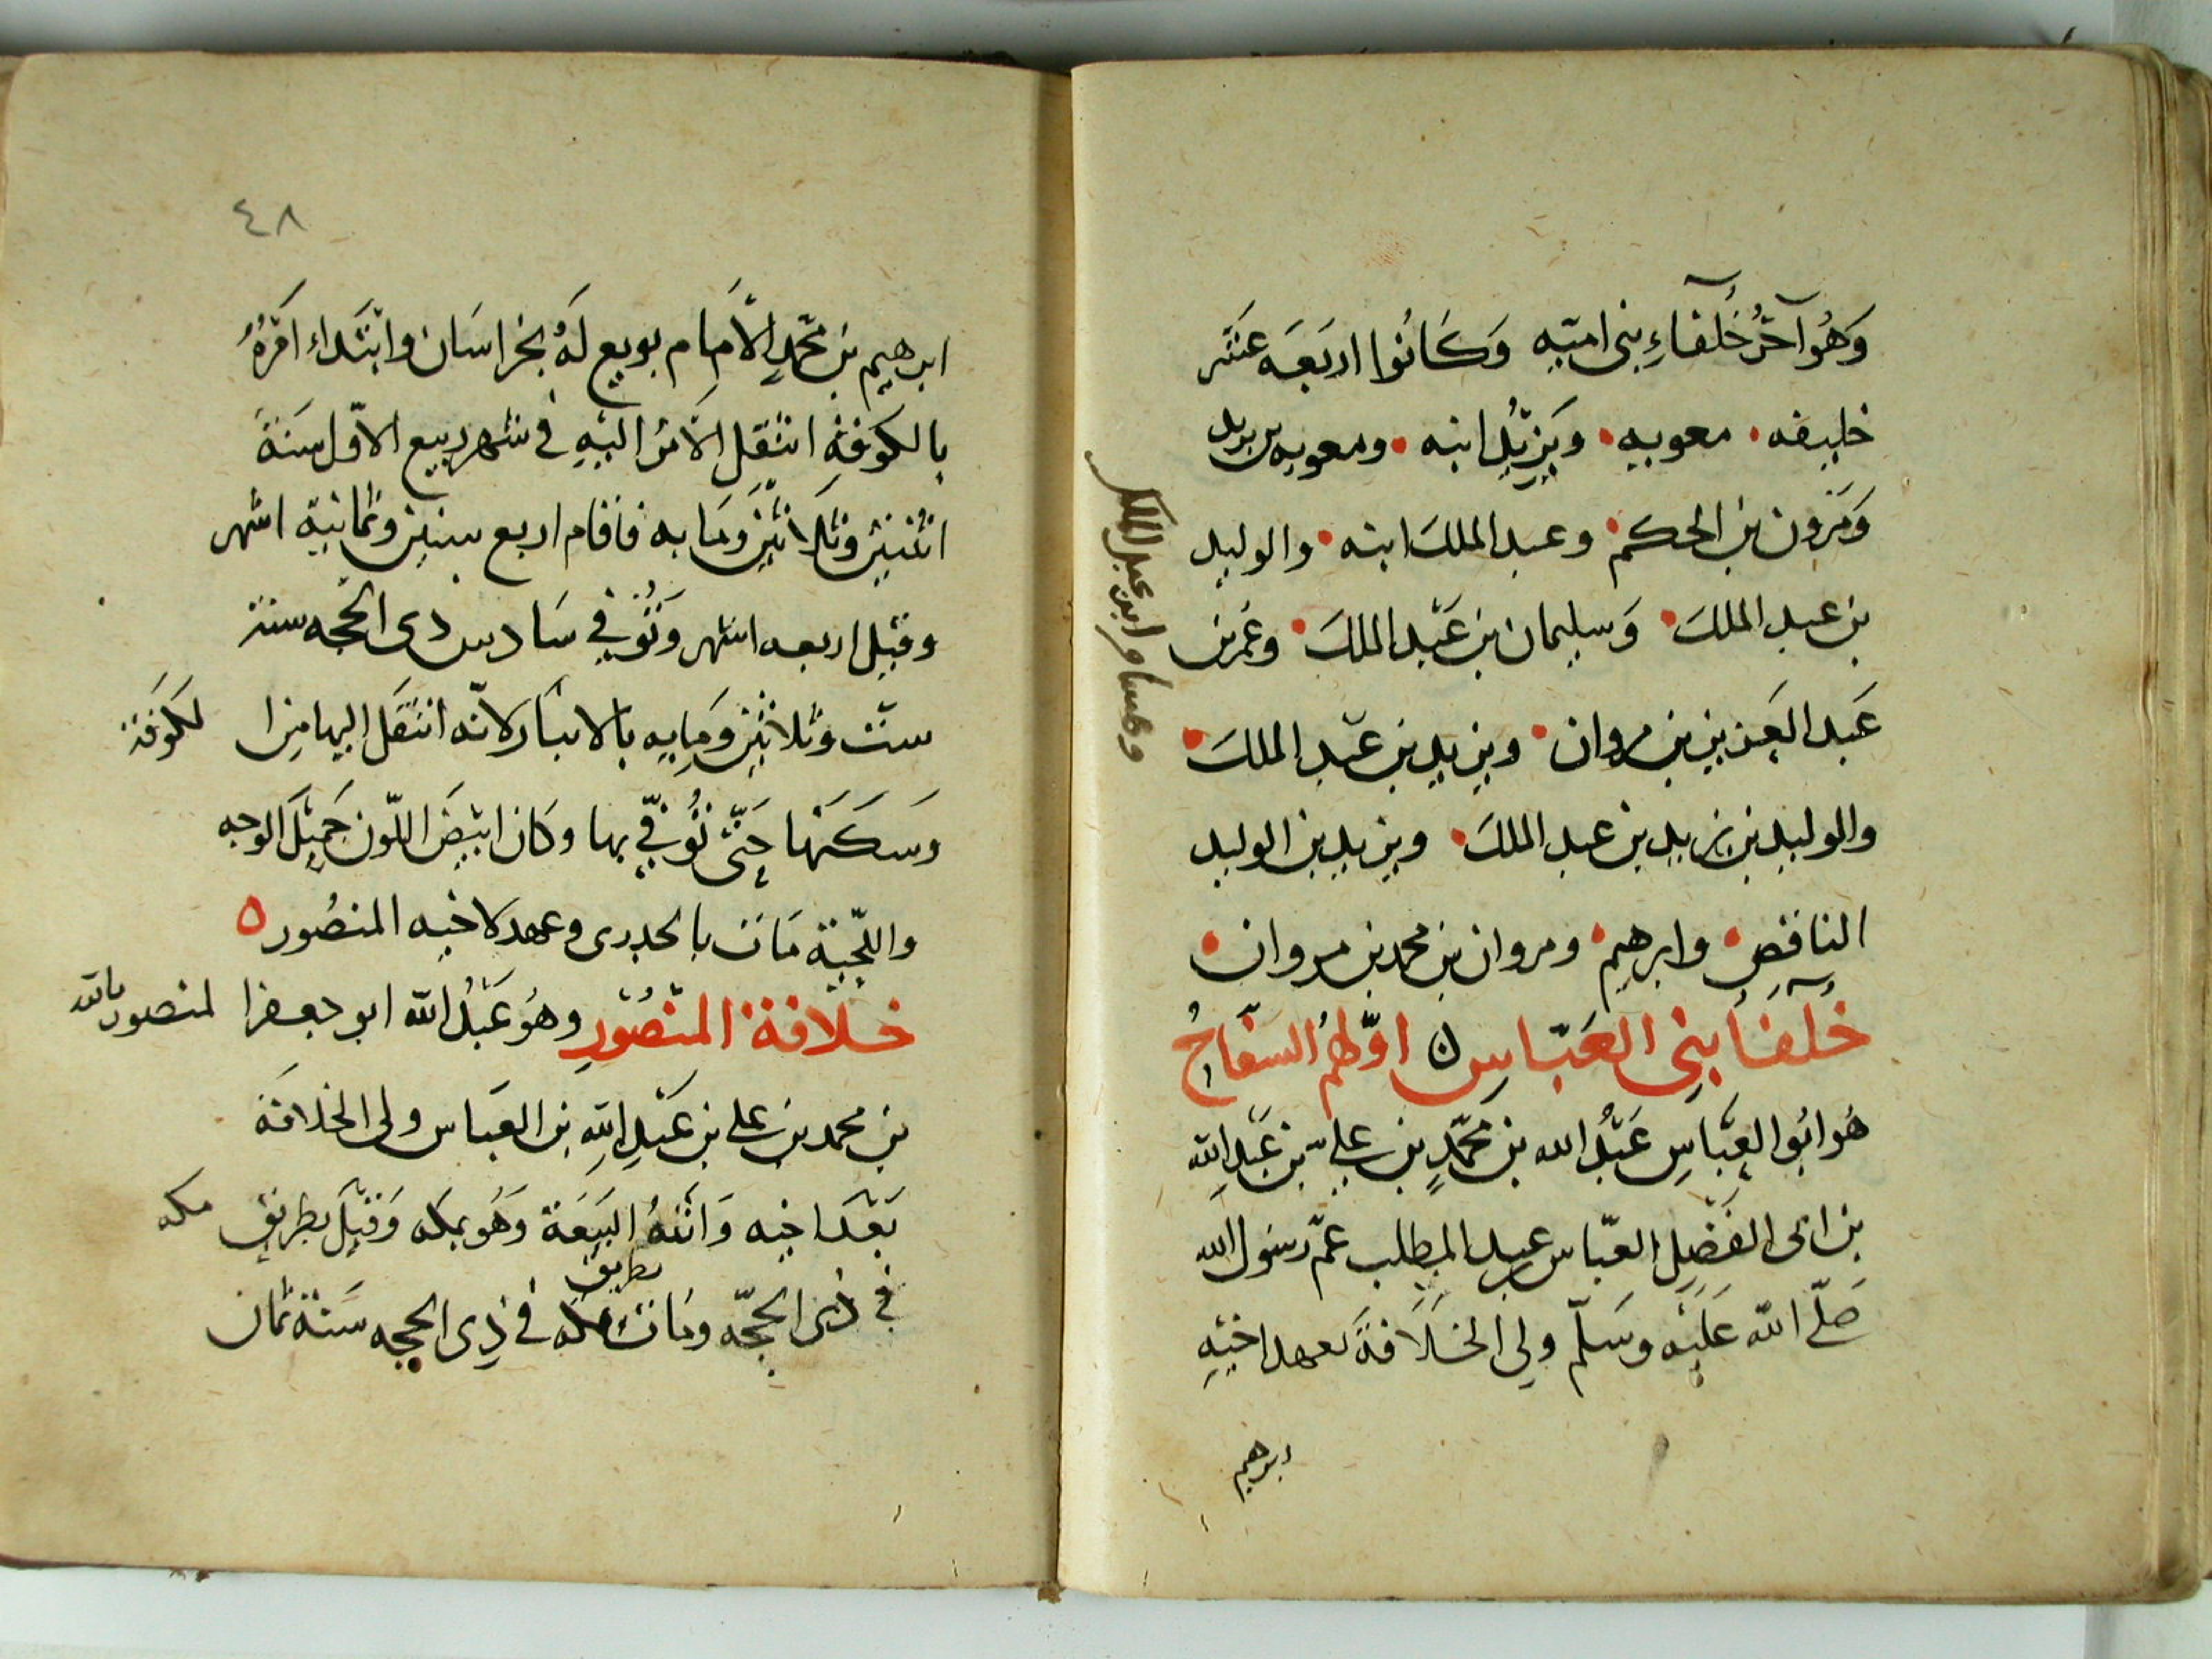 وَهُوَ آخرُ خُلفآءِ بنى اميّه وَكَانُوا اربَعَه عَشر
خليفه معويه ويَزيْدُ ابنه ومعويه بن يزيد
وَمَرون بن الحكم وعبد الملكَ ابنه والوليد
بن عبد الملكَ وَسليمان بن عَبْد الملكَ وعُمر بن
عَبد العَزيز بن مروان ويزيد بن عَبْد الملكَ
وهشام ابن عبد الملك
والوليد بن يزيد بن عبد الملكَ ويزيد بن الوليد
الناقص وابرهيم ومروان بن محمد بن مروان
خُلَفَآ بَنِى العَبّاسِ ن اوّلهُم السفّاحُ
هُو ابُو العبّاسِ عَبْدُ الله بن محمّدٍ بن على بن عَبْدِ الله
بن ابى الفَضْلِ العبّاس عبد المطلب عمّ رسَول الله
صَلّى الله عَلَيْه وسَلّم ولى الخلَافةَ بعهد اخيْهِ
ابرهيم
٤٨
ابرهيم بن محمّدٍ الاَمام بويع لَهُ بخراسَان وابتَداء امْرُهُ
بالكوْفةِ انتقل الاَمرُ اليْهِ فى شهر ربيع الاوّل سَنَةَ
اثنتيْن وثلاَثيْن وَمَايه فاقام اربع سنين وثمانية اشهر
وقيل اربعه اشهر وَتُوُفي في سَادس ذى الحجّه سنة
ستّ وثلاثيْن وَمايه بالانبَار لانّه انتقَل اليها من الكوفَة
وَسَكَنَها حَتّى تُوُفّي بها وكان ابيَضَ اللّون جَميْلَ الوجه
واللّحْيَة مَاتَ بالجدرى وعهد لاخيه المنصُور ه
خلافة المنْصُوْرِ وهُو عَبْدُ الله ابو جعفر المنصور بالله
بن محمد بن على بن عَبْدِ اللهِ بن العبَاس ولى الخلافَةَ
بَعْدَ اخيه وَاتَتْهُ البَيعَة وَهُو بمكه وَقيْلَ بطريق مكه
في ذى الحجّه ومَات بطريق مكه فى ذِى الحجه سَنة ثمان